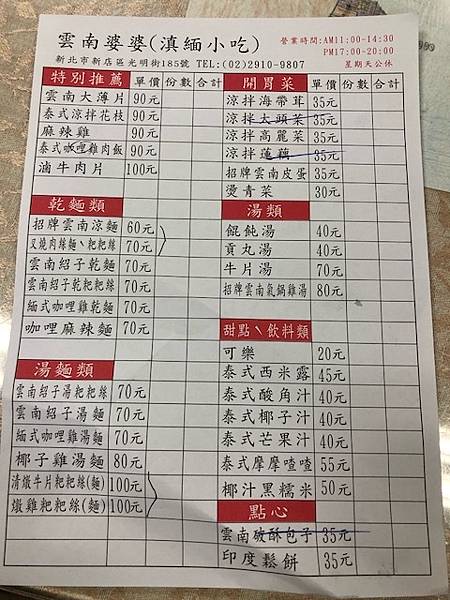 雲南婆婆(滇緬小吃)
營業時間:AM11:00-14:30
PM17:00-20:00
新北市新店區光明街185號 TEL:(02)2910-9807
星期天公休
特別推薦 單價 份數 合計
雲南大薄片 90元
泰式涼拌花枝 90元
麻辣雞 90元
泰式咖哩雞肉飯 90元
滷牛肉片 100元
乾麵類
招牌雲南涼麵 60元
叉燒肉絲麵、粑粑絲 70元
雲南紹子乾麵 70元
雲南紹子乾粑粑絲 70元
緬式咖哩雞乾麵 70元
咖哩麻辣麵 70元
湯麵類
雲南紹子湯粑粑絲 70元
雲南紹子湯麵 70元
緬式咖哩雞湯麵 70元
椰子雞湯麵 80元
清燉牛片粑粑絲(麵) 100元
燉雞粑粑絲(麵) 100元
開胃菜 單價 份數 合計
涼拌海帶茸 35元
涼拌大頭菜 35元
涼拌高麗菜 35元
涼拌蓮藕 35元
招牌雲南皮蛋 35元
燙青菜 30元
湯類
餛飩湯 40元
貢丸湯 40元
牛片湯 70元
招牌雲南氣鍋雞湯 80元
甜點、飲料類
可樂 20元
泰式西米露 45元
泰式酸角汁 40元
泰式椰子汁 40元
泰式芒果汁 40元
泰式摩摩喳喳 55元
椰汁黑糯米 50元
點心
雲南破酥包子 35元
印度鬆餅 35元